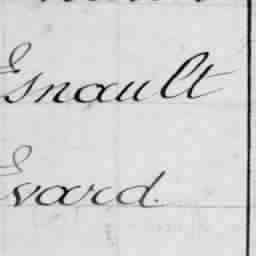 Esnault
Evard.